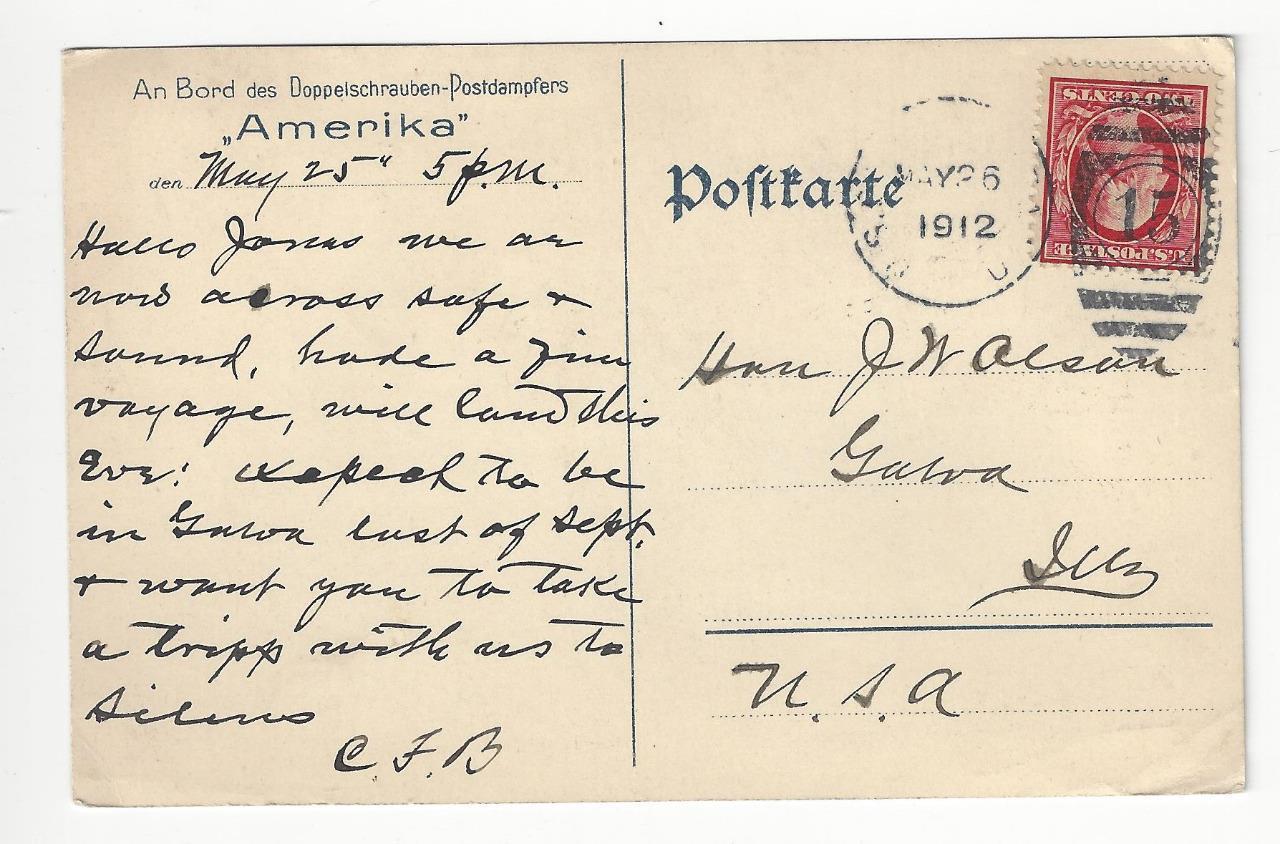 An Bord des Doppelschrauben-Postdampfers
„Amerika"
den May 25" 5 p.m.
Hallo Jonas we are
now across safe +
sound, hade a fine
voyage, will land this
Eve: expect to be
in Galva last of Sept.
+ want you to take
a tripp with us to
C. F. B
Postkarte
MAY 26
1912
TWO CENTS
U.S. POSTAGE
15
Hon J W Olson
Galva
Ills
U. S. A